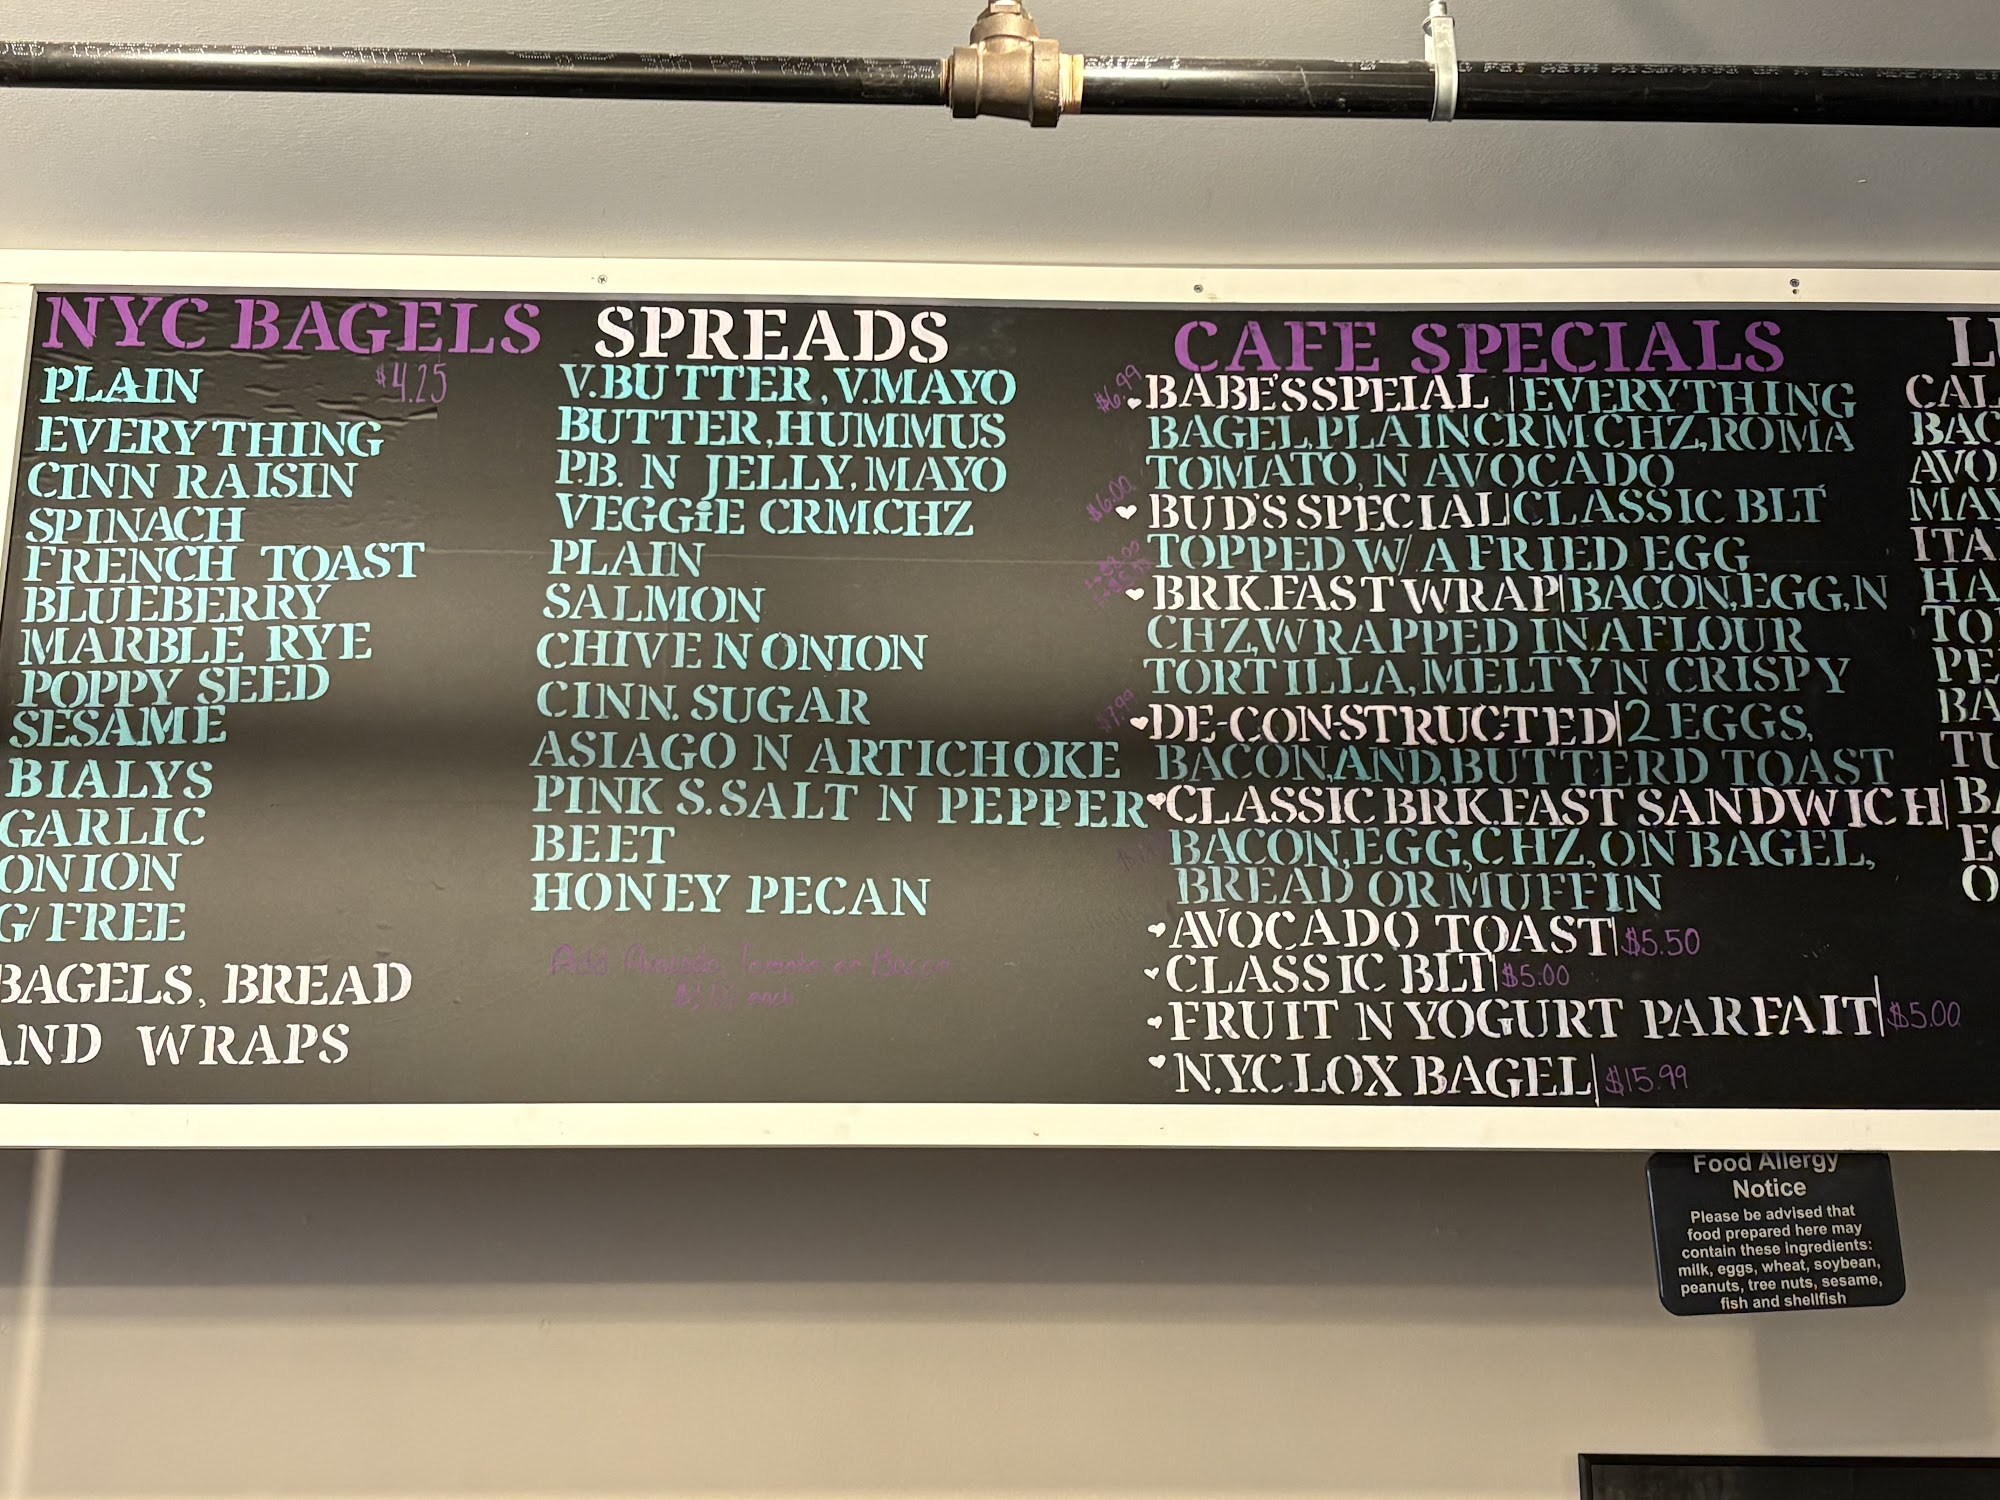 NYC BAGELS
$4.25
PLAIN
EVERYTHING
CINN RAISIN
SPINACH
FRENCH TOAST
BLUEBERRY
MARBLE RYE
POPPY SEED
SESAME
BIALYS
GARLIC
ONION
G/FREE
BAGELS, BREAD
AND WRAPS
SPREADS
V.BUTTER, V.MAYO
BUTTER, HUMMUS
P.B. N JELLY, MAYO
VEGGiE CRM.CHZ
PLAIN
SALMON
CHIVE N ONION
CINN. SUGAR
ASIAGO N ARTICHOKE
PINK S.SALT N PEPPER
BEET
HONEY PECAN
Add Avocado, Tomato or Bacon
each
CAFE SPECIALS
$6.99
BABE'S SPEIAL | EVERYTHING
BAGEL, PLAIN CRM CHZ, ROMA
TOMATO, N AVOCADO
$6.00
BUD'S SPECIAL | CLASSIC BLT
TOPPED W/ A FRIED EGG
BRK.FAST WRAP | BACON, EGG, N
CHZ, WRAPPED IN A FLOUR
TORTILLA, MELTY N CRISPY
$7.99
DE-CONSTRUCTED | 2 EGGS,
BACON, AND, BUTTERD TOAST
CLASSIC BRK.FAST SANDWICH |
BACON, EGG, CHZ, ON BAGEL,
BREAD OR MUFFIN
AVOCADO TOAST | $5.50
CLASSIC BLT | $5.00
FRUIT N YOGURT PARFAIT | $5.00
N.Y.C LOX BAGEL | $15.99
Food Allergy
Notice
Please be advised that
food prepared here may
contain these ingredients:
milk, eggs, wheat, soybean,
peanuts, tree nuts, sesame,
fish and shellfish